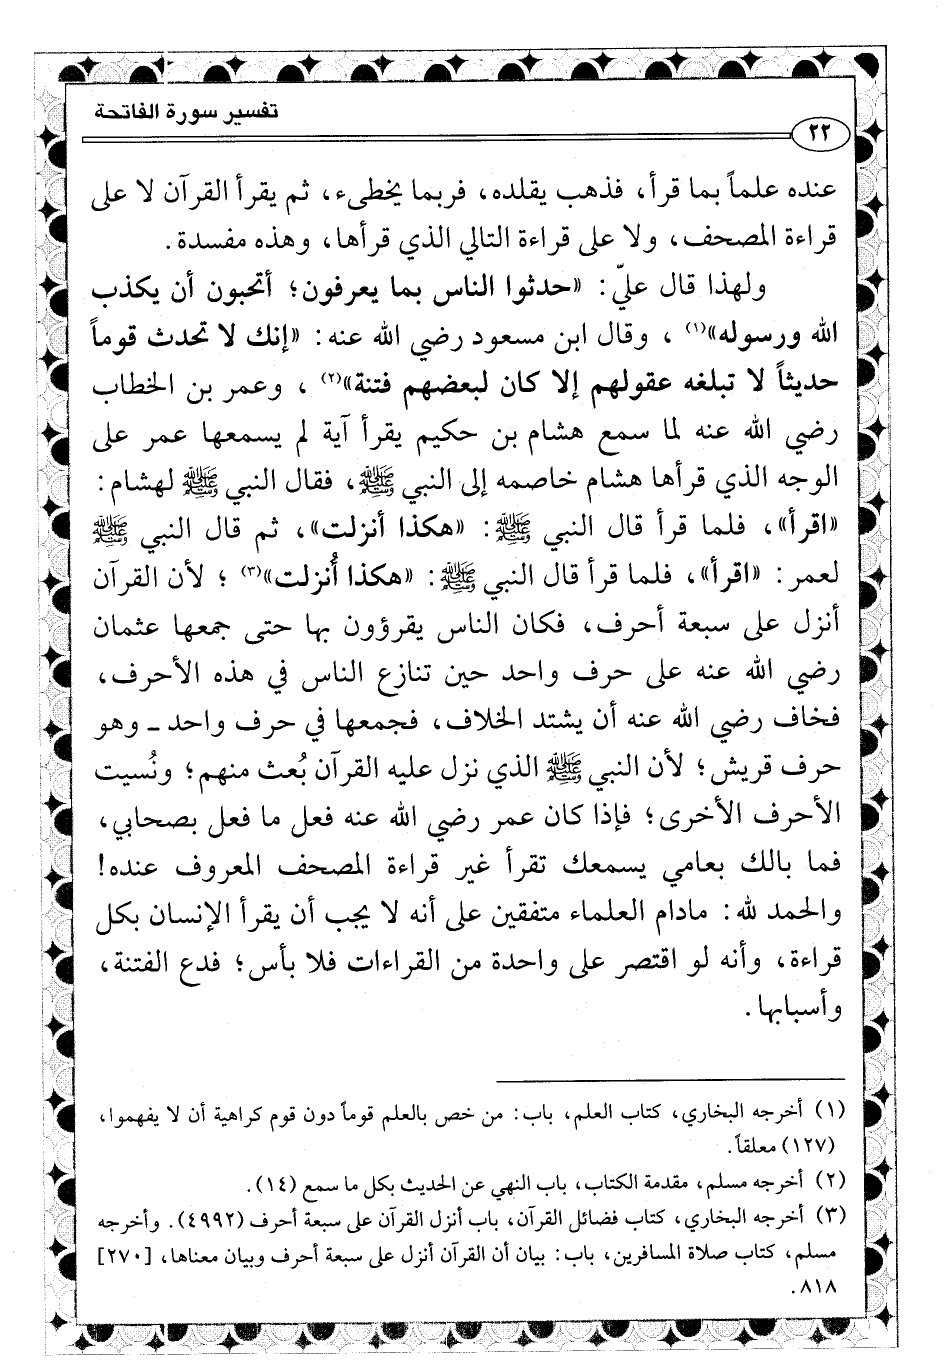 تفسير سورة الفاتحة
٢٢
عنده علماً بما قرأ، فذهب يقلده، فربما يخطىء، ثم يقرأ القرآن لا على
قراءة المصحف، ولا على قراءة التالي الذي قرأها، وهذه مفسدة.
ولهذا قال عليّ: «حدثوا الناس بما يعرفون؛ أتحبون أن يكذب
الله ورسوله»(١) ، وقال ابن مسعود رضي الله عنه: «إنك لا تحدث قوماً
حديثاً لا تبلغه عقولهم إلا كان لبعضهم فتنة»(٢) ، وعمر بن الخطاب
رضي الله عنه لما سمع هشام بن حكيم يقرأ آية لم يسمعها عمر على
الوجه الذي قرأها هشام خاصمه إلى النبي ﷺ، فقال النبي ﷺ لهشام:
«اقرأ»، فلما قرأ قال النبي ﷺ: «هكذا أنزلت»، ثم قال النبي ﷺ
لعمر: «اقرأ»، فلما قرأ قال النبي ﷺ: «هكذا أُنزلت»(٣) ؛ لأن القرآن
أنزل على سبعة أحرف، فكان الناس يقرؤون بها حتى جمعها عثمان
رضي الله عنه على حرف واحد حين تنازع الناس في هذه الأحرف،
فخاف رضي الله عنه أن يشتد الخلاف، فجمعها في حرف واحد ـ وهو
حرف قريش؛ لأن النبي ﷺ الذي نزل عليه القرآن بُعث منهم؛ ونُسيت
الأحرف الأخرى؛ فإذا كان عمر رضي الله عنه فعل ما فعل بصحابي،
فما بالك بعامي يسمعك تقرأ غير قراءة المصحف المعروف عنده!
والحمد لله: مادام العلماء متفقين على أنه لا يجب أن يقرأ الإنسان بكل
قراءة، وأنه لو اقتصر على واحدة من القراءات فلا بأس؛ فدع الفتنة،
وأسبابها.
(١) أخرجه البخاري، كتاب العلم، باب: من خص بالعلم قوماً دون قوم كراهية أن لا يفهموا،
(١٢٧) معلقاً.
(٢) أخرجه مسلم، مقدمة الكتاب، باب النهي عن الحديث بكل ما سمع (١٤).
(٣) أخرجه البخاري، كتاب فضائل القرآن، باب أنزل القرآن على سبعة أحرف (٤٩٩٢). وأخرجه
مسلم، كتاب صلاة المسافرين، باب: بيان أن القرآن أنزل على سبعة أحرف وبيان معناها، [٢٧٠]
٨١٨.